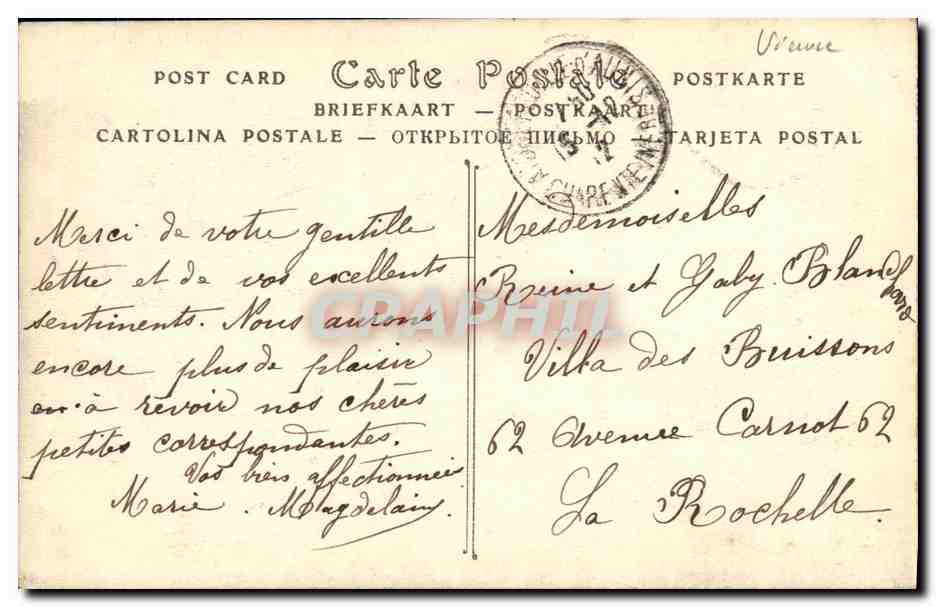 Vienne
POST CARD Carte Postale POSTKARTE
BRIEFKAART — POSTKAART
CARTOLINA POSTALE — ОТКРЫТОЕ ПИСЬМО — TARJETA POSTAL
D'AUNIS
CHARENTE INFRE
15
12
Merci de votre gentille
lettre et de vos excellents
sentiments. Nous aurons
encore plus de plaisir
à revoir nos chères
petites correspondantes.
Vos bien affectionnées
Marie. Magdelaine
Mesdemoiselles
Reine et Gaby Blanchard
Villa des Buissons
62 Avenue Carnot 62
La Rochelle.
CPAPHIL